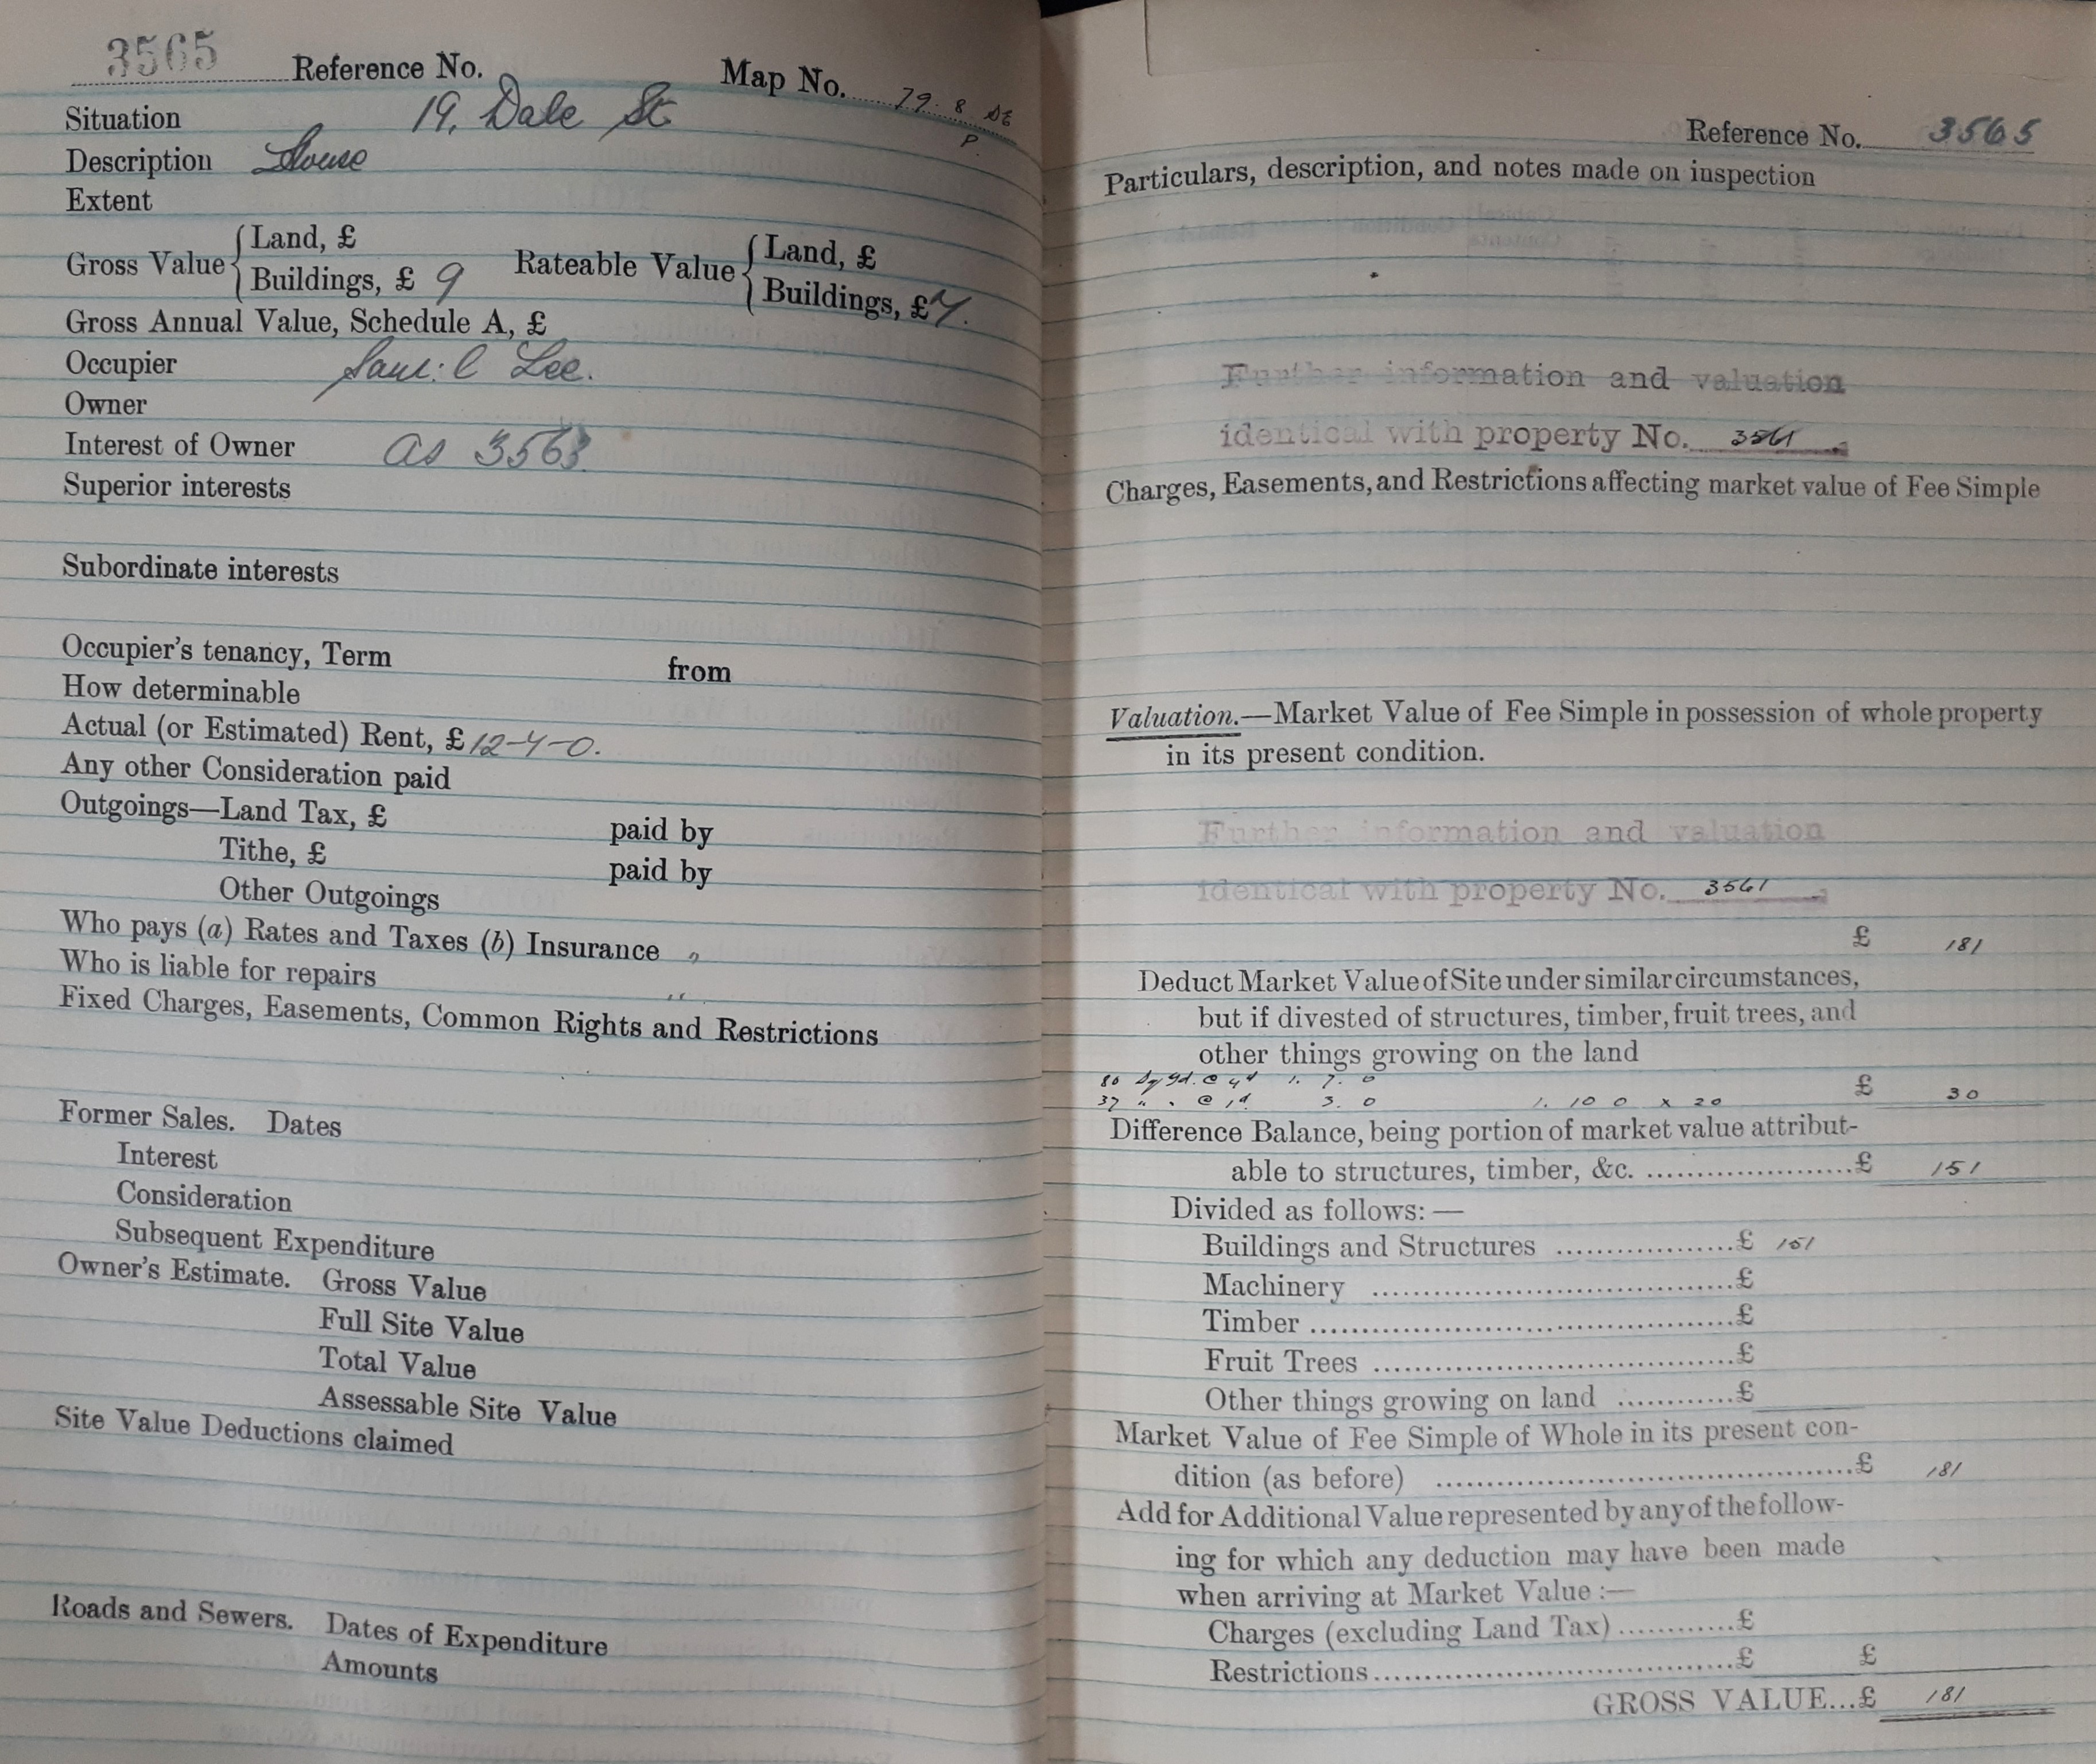 3565 Reference No. Map No. 79. 8 SE
P.
Situation 19, Dale St
Description House
Extent
Gross Value { Land, £
Buildings, £ 9
Rateable Value { Land, £
Buildings, £ 7.
Gross Annual Value, Schedule A, £
Occupier Sam:l Lee.
Owner
Interest of Owner as 3563
Superior interests
Subordinate interests
Occupier's tenancy, Term from
How determinable
Actual (or Estimated) Rent, £ 12-4-0.
Any other Consideration paid
Outgoings—Land Tax, £ paid by
Tithe, £ paid by
Other Outgoings
Who pays (a) Rates and Taxes (b) Insurance "
Who is liable for repairs "
Fixed Charges, Easements, Common Rights and Restrictions
Former Sales. Dates
Interest
Consideration
Subsequent Expenditure
Owner's Estimate. Gross Value
Full Site Value
Total Value
Assessable Site Value
Site Value Deductions claimed
Roads and Sewers. Dates of Expenditure
Amounts
Reference No. 3565
Particulars, description, and notes made on inspection
Further information and valuation
identical with property No. 3561
Charges, Easements, and Restrictions affecting market value of Fee Simple
Valuation.—Market Value of Fee Simple in possession of whole property
in its present condition.
Further information and valuation
identical with property No. 3561
£ 181
Deduct Market Value of Site under similar circumstances,
but if divested of structures, timber, fruit trees, and
other things growing on the land
80 Sq yd. @ 4d 1. 7. 0
37 " " @ 1d. 3. 0 1. 10 0 x 20 £ 30
Difference Balance, being portion of market value attribut-
able to structures, timber, &c. ....................£ 151
Divided as follows:—
Buildings and Structures .................£ 151
Machinery ..................................£
Timber ........................................£
Fruit Trees ..................................£
Other things growing on land ...........£
Market Value of Fee Simple of Whole in its present con-
dition (as before) ........................................£ 181
Add for Additional Value represented by any of the follow-
ing for which any deduction may have been made
when arriving at Market Value:—
Charges (excluding Land Tax) ...........£
Restrictions ..................................£ £
GROSS VALUE...£ 181